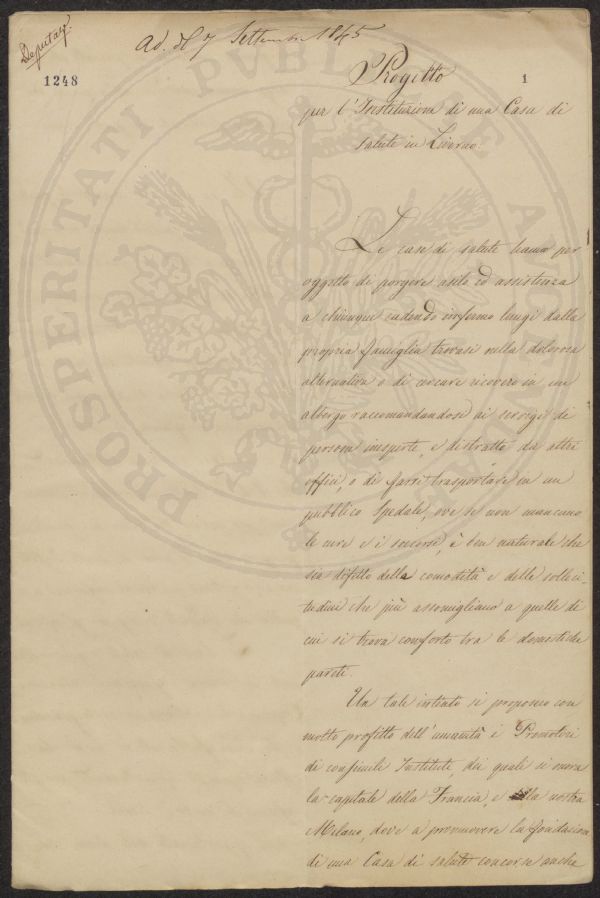 Deputaz
Ad. dl 7 Settembre 1865
1248
1
Progetto
per l'Instituzione di una Casa di
salute in Livorno.
Le case di salute hanno per
oggetto di porgere asilo ed assistenza
a chiunque cadendo infermo lungi dalla
propria famiglia trovasi nella dolorosa
alternativa o di cercare ricovero in un
albergo raccomandandosi ai servigi di
persone inesperte, e distratte da altri
offici, o di farsi trasportare in un
pubblico Spedale, ove se non mancano
le cure e i soccorsi, è ben naturale che
sia difetto della comodità e delle solleci-
tudini che più assomigliano a quelle di
cui si trova conforto tra le domestiche
pareti.
Un tale intento si proposero con
molto profitto dell'umanità i Promotori
di consimili Instituti, dei quali si onora
la capitale della Francia, e la nostra
Milano, dove a promuovere la fondazione
di una Casa di salute concorse anche
PROSPERITATI PVBLICAE